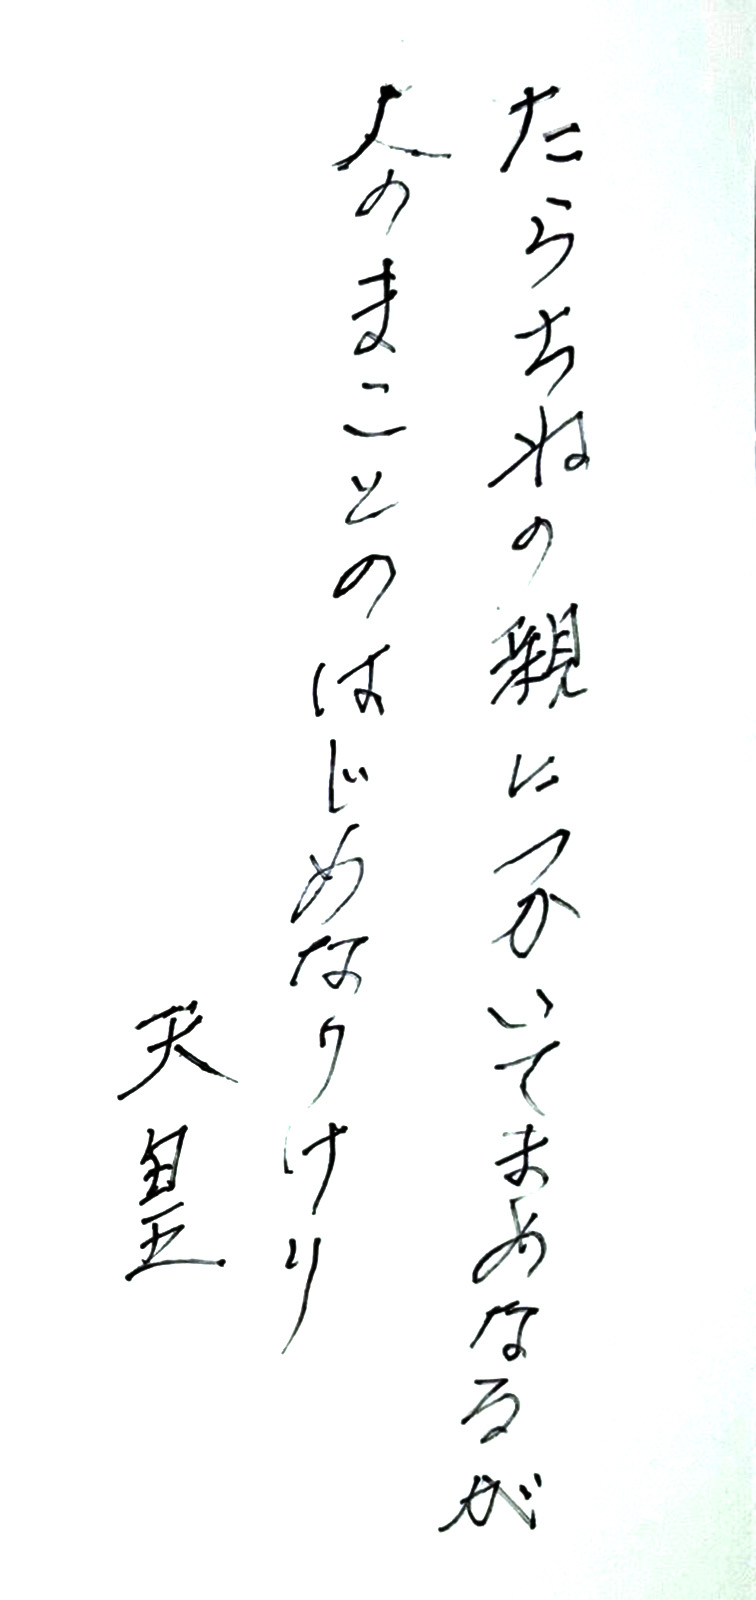 たらちねの親につかいてまめなるが
人のまことのはじめなりけり
天皇